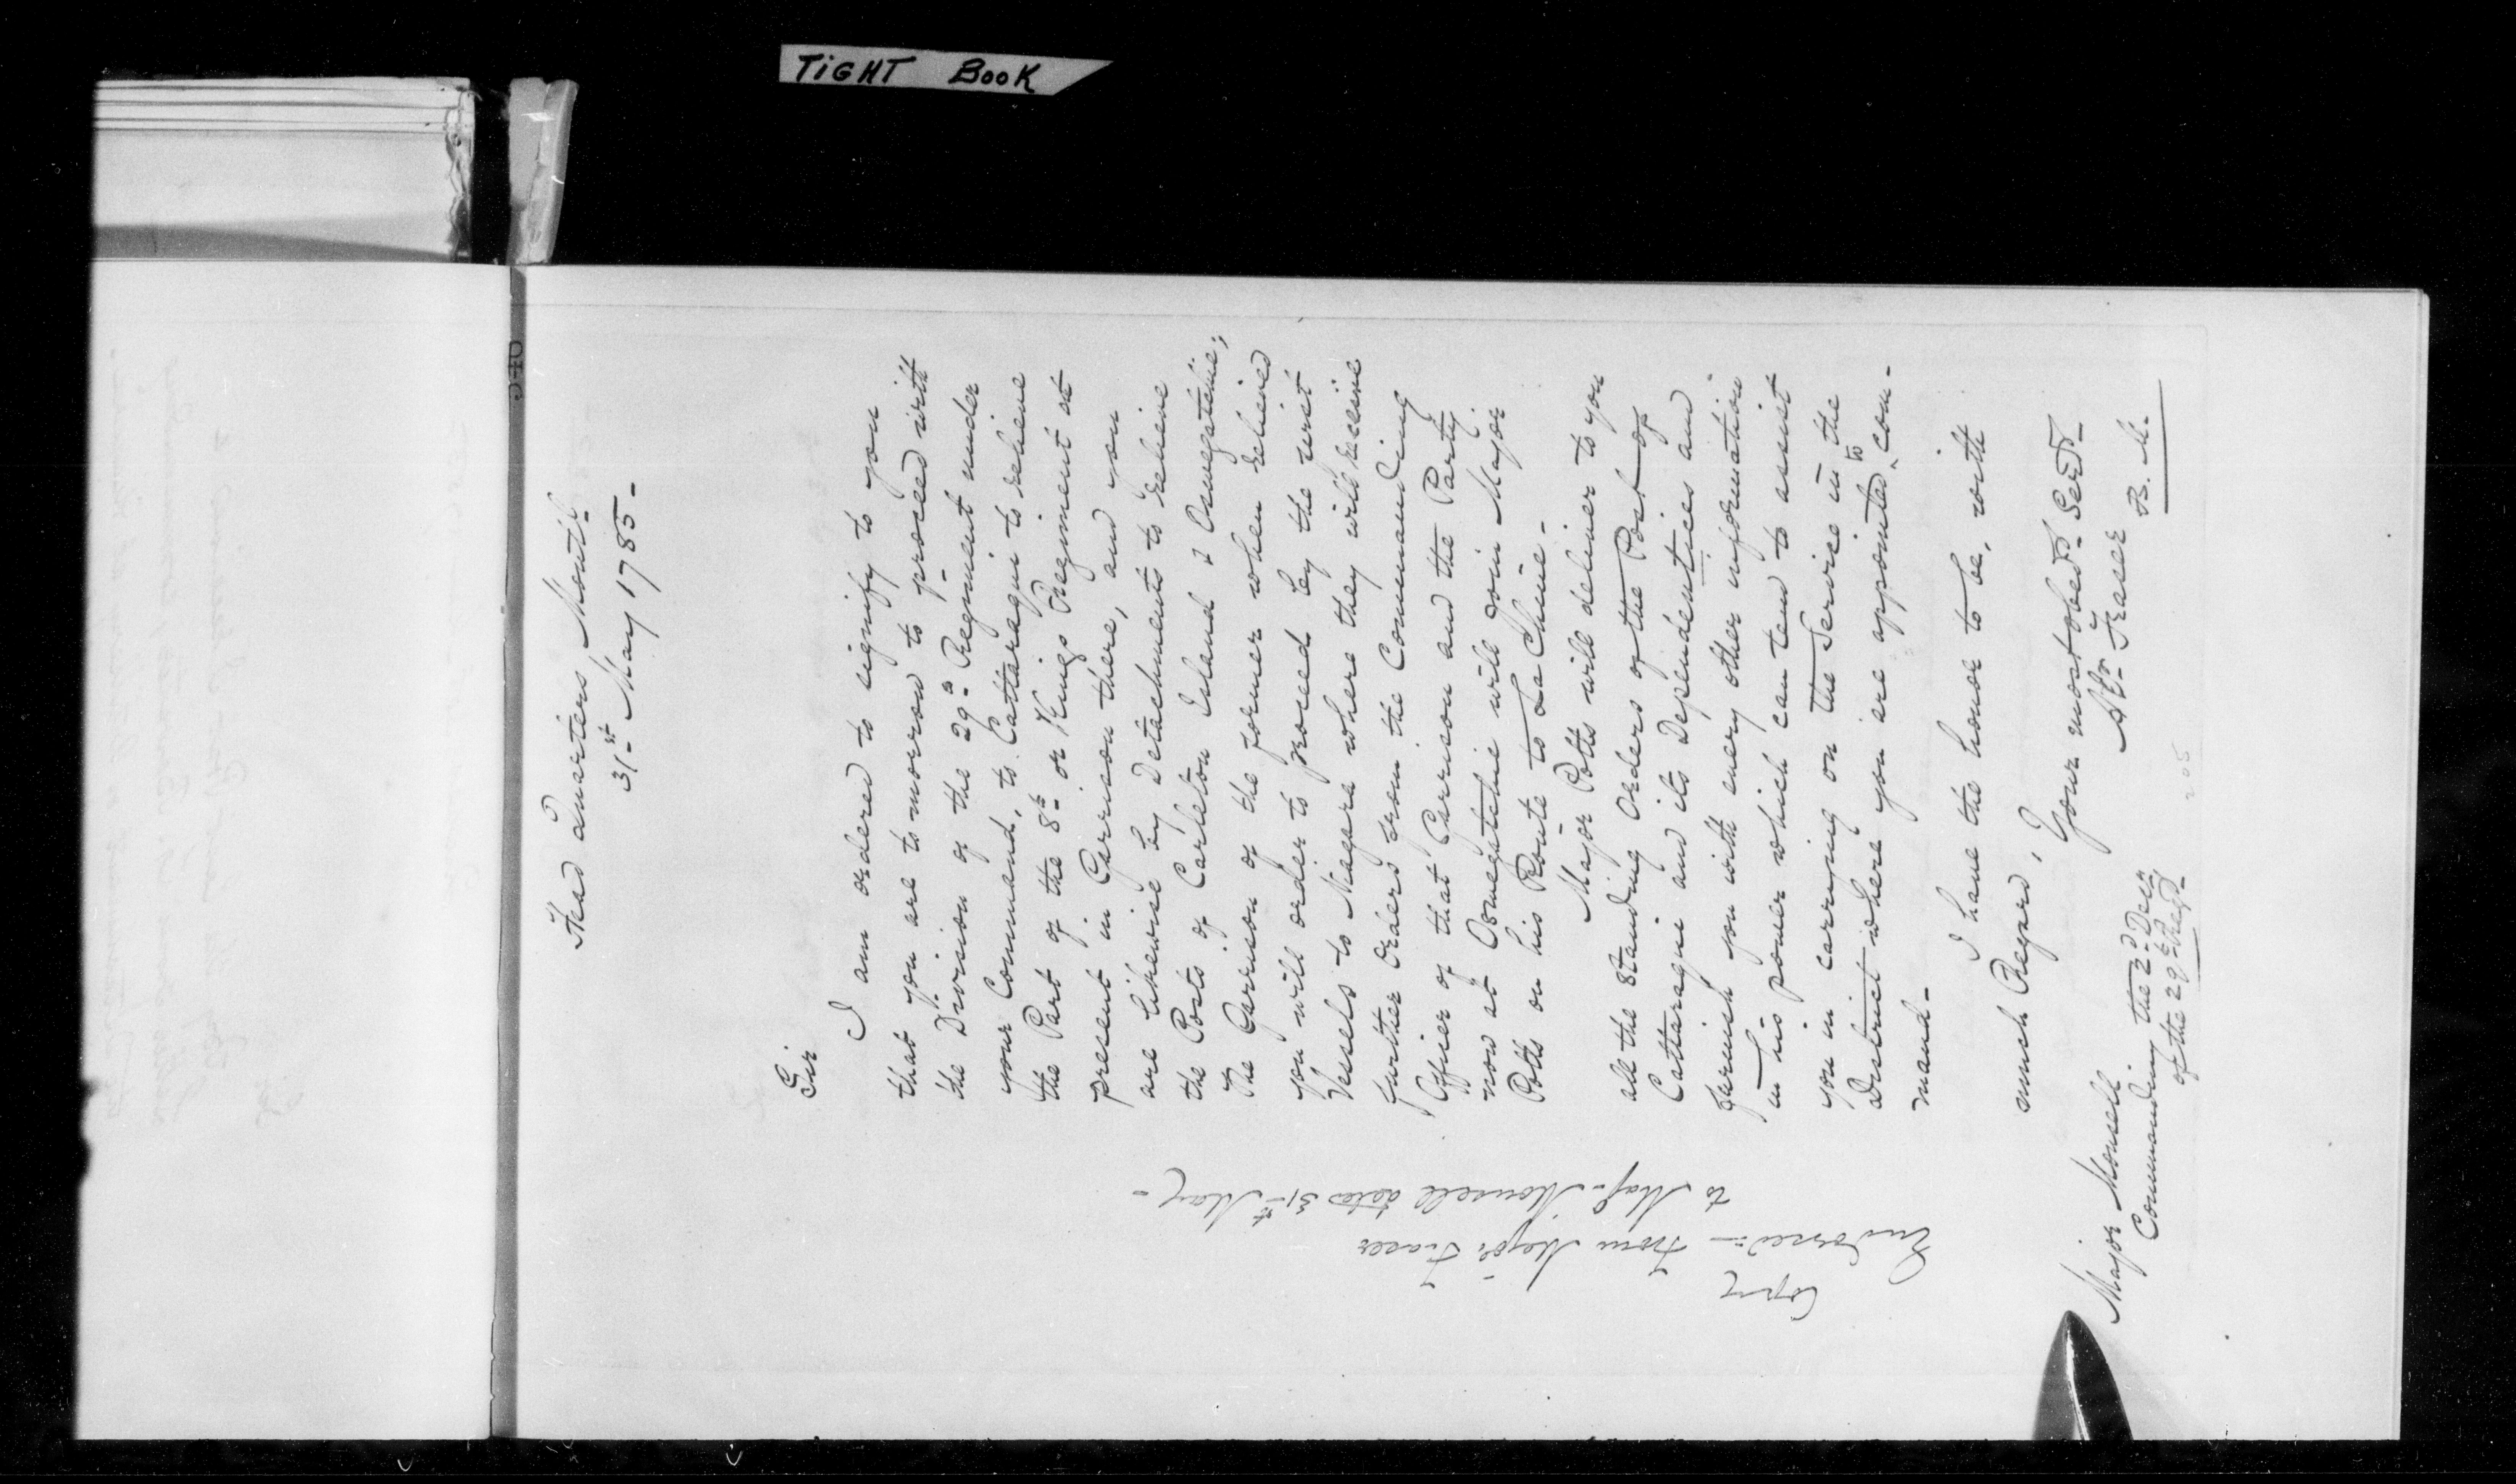 TIGHT BOOK
340
Head Quarters Montl.
31st May 1785 -
Sir
I am ordered to signify to you
that you are to morrow to proceed with
the Division of the 29th Regiment under
your Command, to Cattaraqui to relieve
the Part of the 8th or Kings Regiment at
present in Garrison there, and you
are likewise by Detachments to relieve
the Posts of Carleton Island & Oswegatchie;
The Garrison of the former when relieved
you will order to proceed by the first
Vessels to Niagara where they will receive
further Orders from the Commanding
Officer of that Garrison and the Party
now at Oswegatchie will join Major
Potts on his Route to La Chine -
Major Potts will deliver to you
all the Standing Orders of the Post of
Catteraqui and its Dependencies and
furnish you with every other information
in his power which can tend to assist
you in carrying on the Service in the
District where you are appointed to com-
mand -
I have the honor to be, with
much Regard,
Your most obedt. Servt.
Alr. Fraser
B. M.
Major Monsell
Commanding the 2d Divn
of the 29th Regt.
Copy
Endorsed :- From Major Fraser
to Majr. Monsell dated 31st May -
205